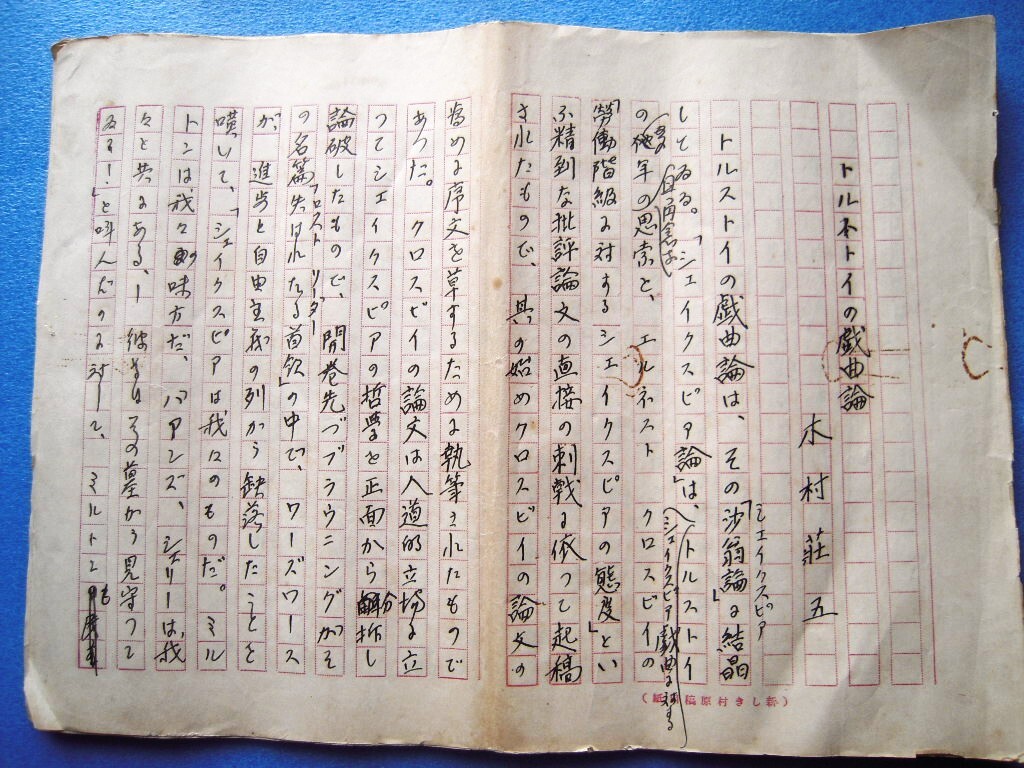 トルストイの戯曲論
木村荘五
トルストイの戯曲論は、その「沙翁論」に結晶
シェイクスピア
してゐる。「シェイクスピア論」は、トルストイ
シェイクスピア戯曲に対する
の年の思索と、エルネスト クロスビイの
「労働階級に対するシェイクスピアの態度」とい
ふ精到な批評論文の直接の刺戟に依つて起稿
されたもので、其の始めクロスビイの論文の
(新しき村原稿用紙)
為めに序文を草するために執筆されたもので
あつた。クロスビイの論文は人道的立場に立
つてシェイクスピアの哲学を正面から分析し
論破したもので、開巻先づブラウニングがそ
の名篇「失はれたる首領」の中で、ワーズワース
ロスト リーダー
が、進歩と自由主義の列から缺落したことを
嘆いて、「シェイクスピアは我々のものだ。ミル
トンは、我々の味方だ、バアンズ、シエリーは、我
々と共にある、ー彼等はその墓から見守つて
ゐる!」と叫んだのに対して、ミルトンも